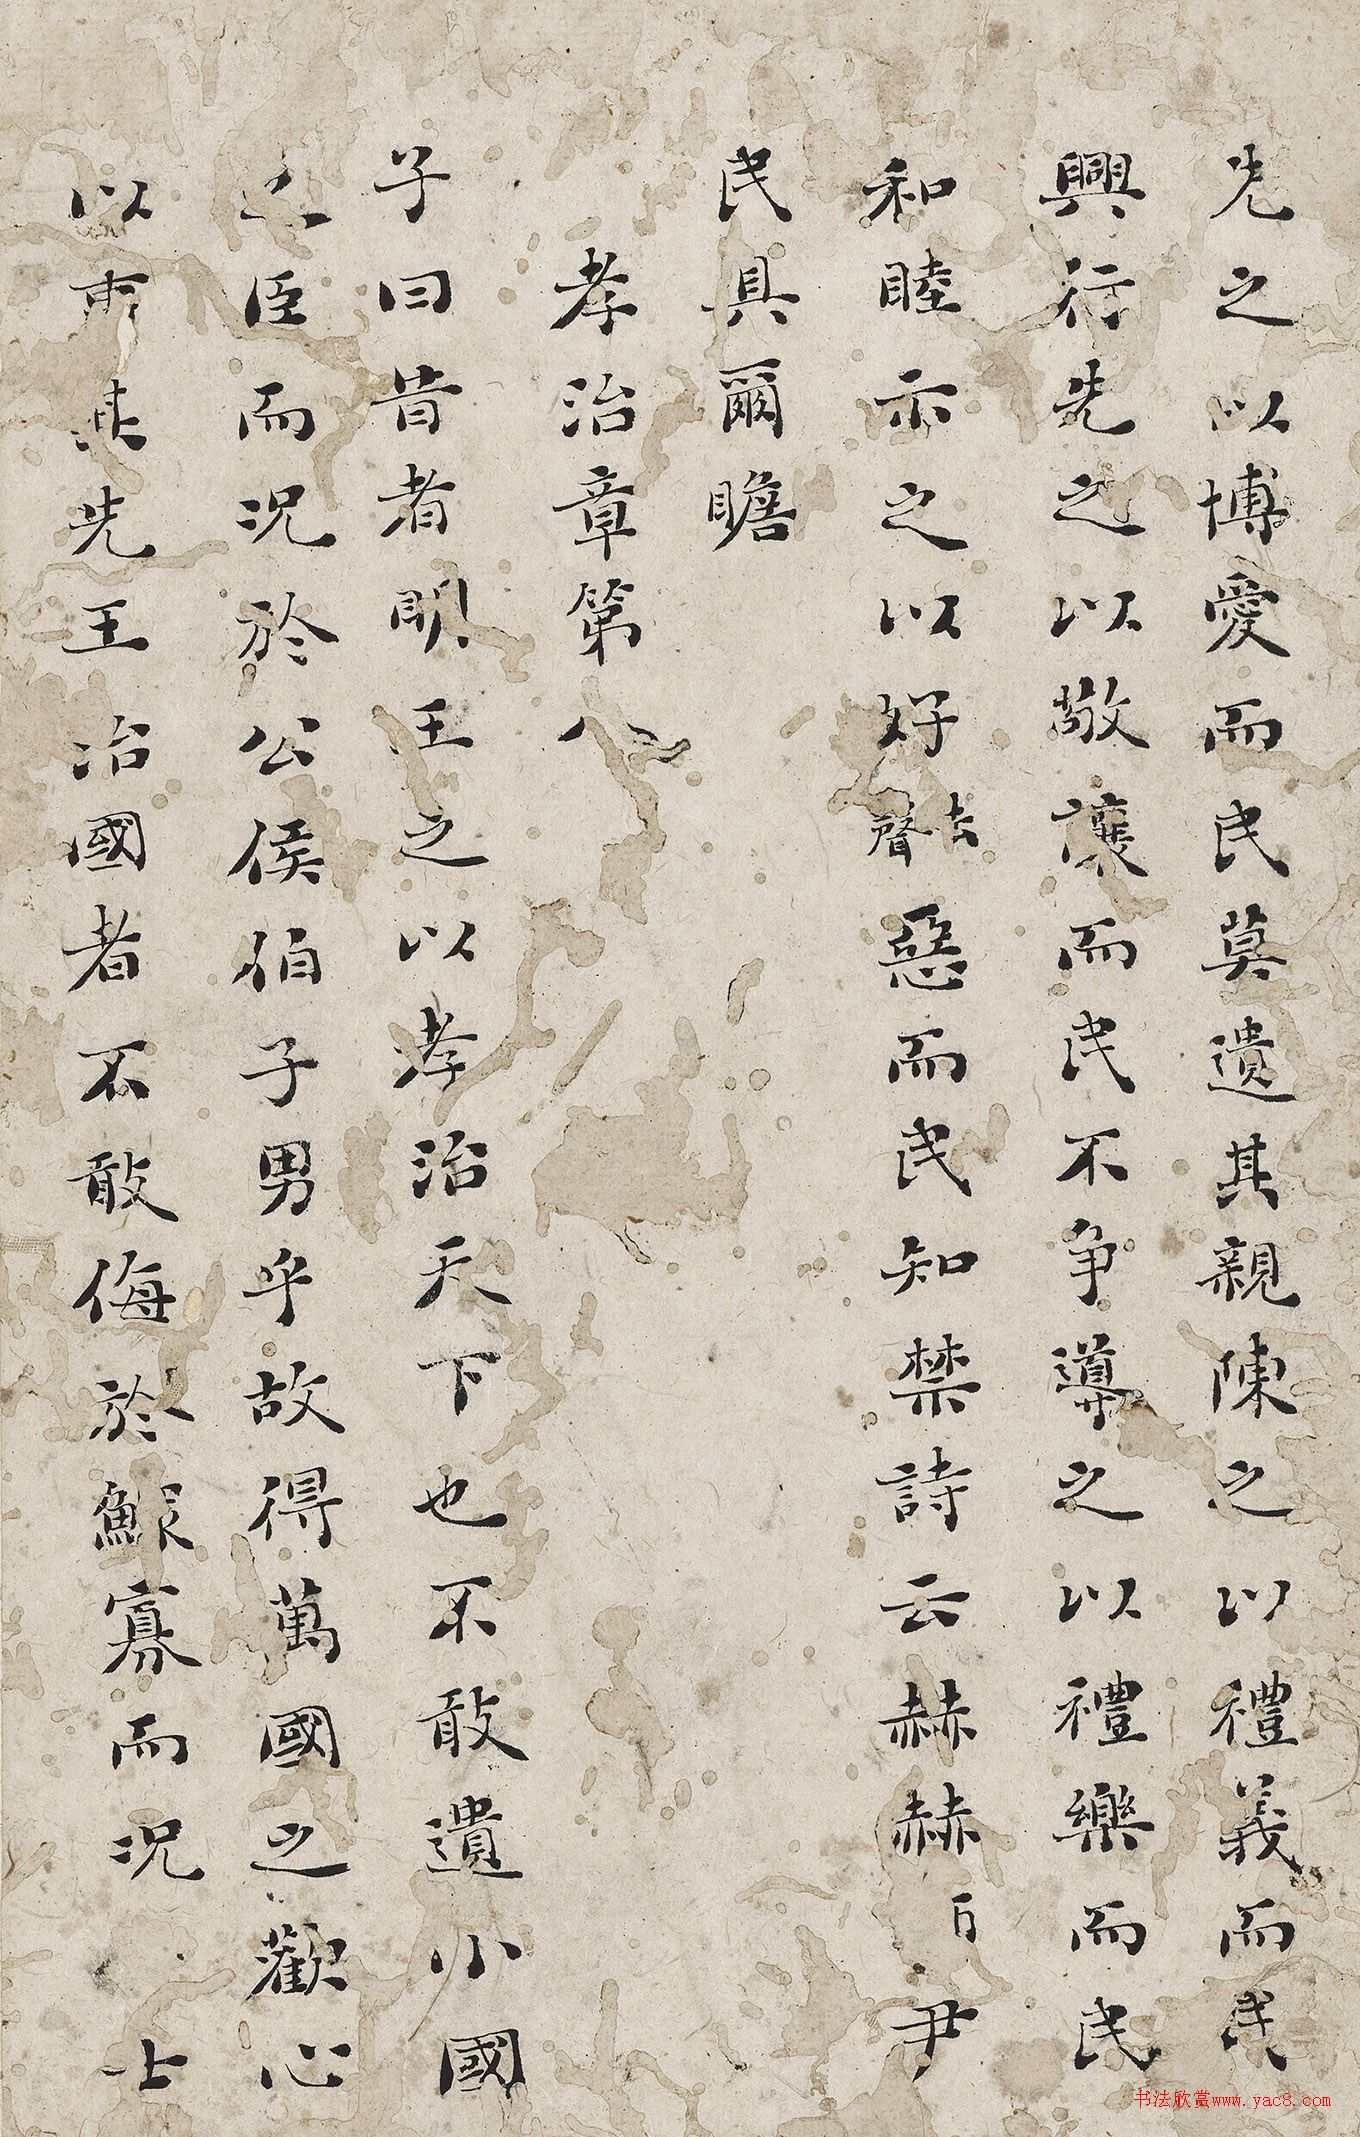 先之以博愛而民莫遺其親陳之以禮義而民
興行先之以敬讓而民不争導之以禮樂而民
和睦示之以好去聲惡而民知禁詩云赫赫尹
民具爾瞻
孝治章第八
子曰昔者明王之以孝治天下也不敢遺小國
之臣而况於公侯伯子男乎故得萬國之歡心
以事其先王治國者不敢侮於鰥寡而况士
书法欣赏www.yac8.com